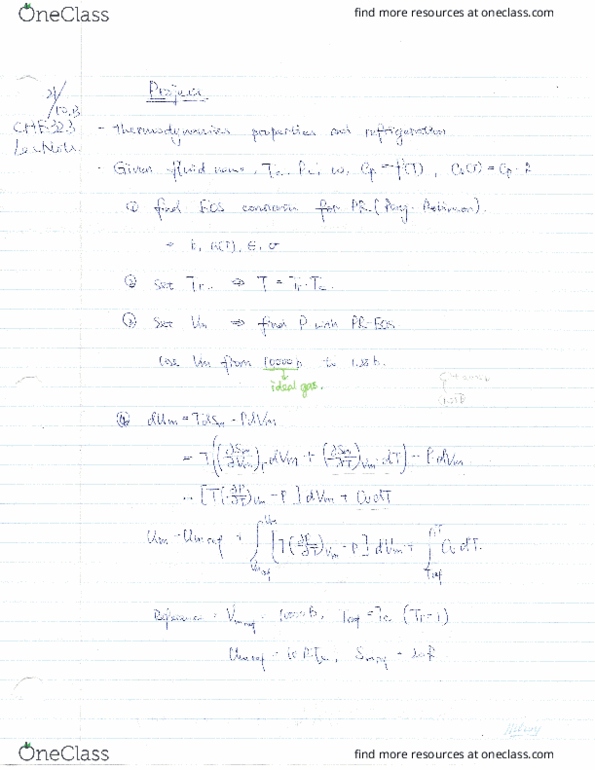 OneClass
find more resources at oneclass.com
Project
CHE 323
- thermodynamics properties and refrigeration
- Given fluid name, Tc, Pc, w, Cp = f(T), Cv(T) = Cp - R
① find EOS constants for PR (Peng-Robinson).
② Set Tr ⇒ T = Tr·Tc
③ Set Vm ⇒ find P with PR-EOS
Use Vm from 10000b to b.
ideal gas.
④ dUm = TdSm - PdVm
= T((∂Sm/∂Vm)T dVm + (∂Sm/∂T)Vm · dT) - PdVm
= [T(∂P/∂T)Vm - P] dVm + CvdT
Um - Um,ref = ∫ Vm,ref Vm [T(∂P/∂T)Vm - P] dVm + ∫ Tref T Cv dT.
Reference : Vm,ref = 10000b, Tref = Tc (Tr=1)
Um,ref = RTc, Sm,ref = R
OneClass
find more resources at oneclass.com